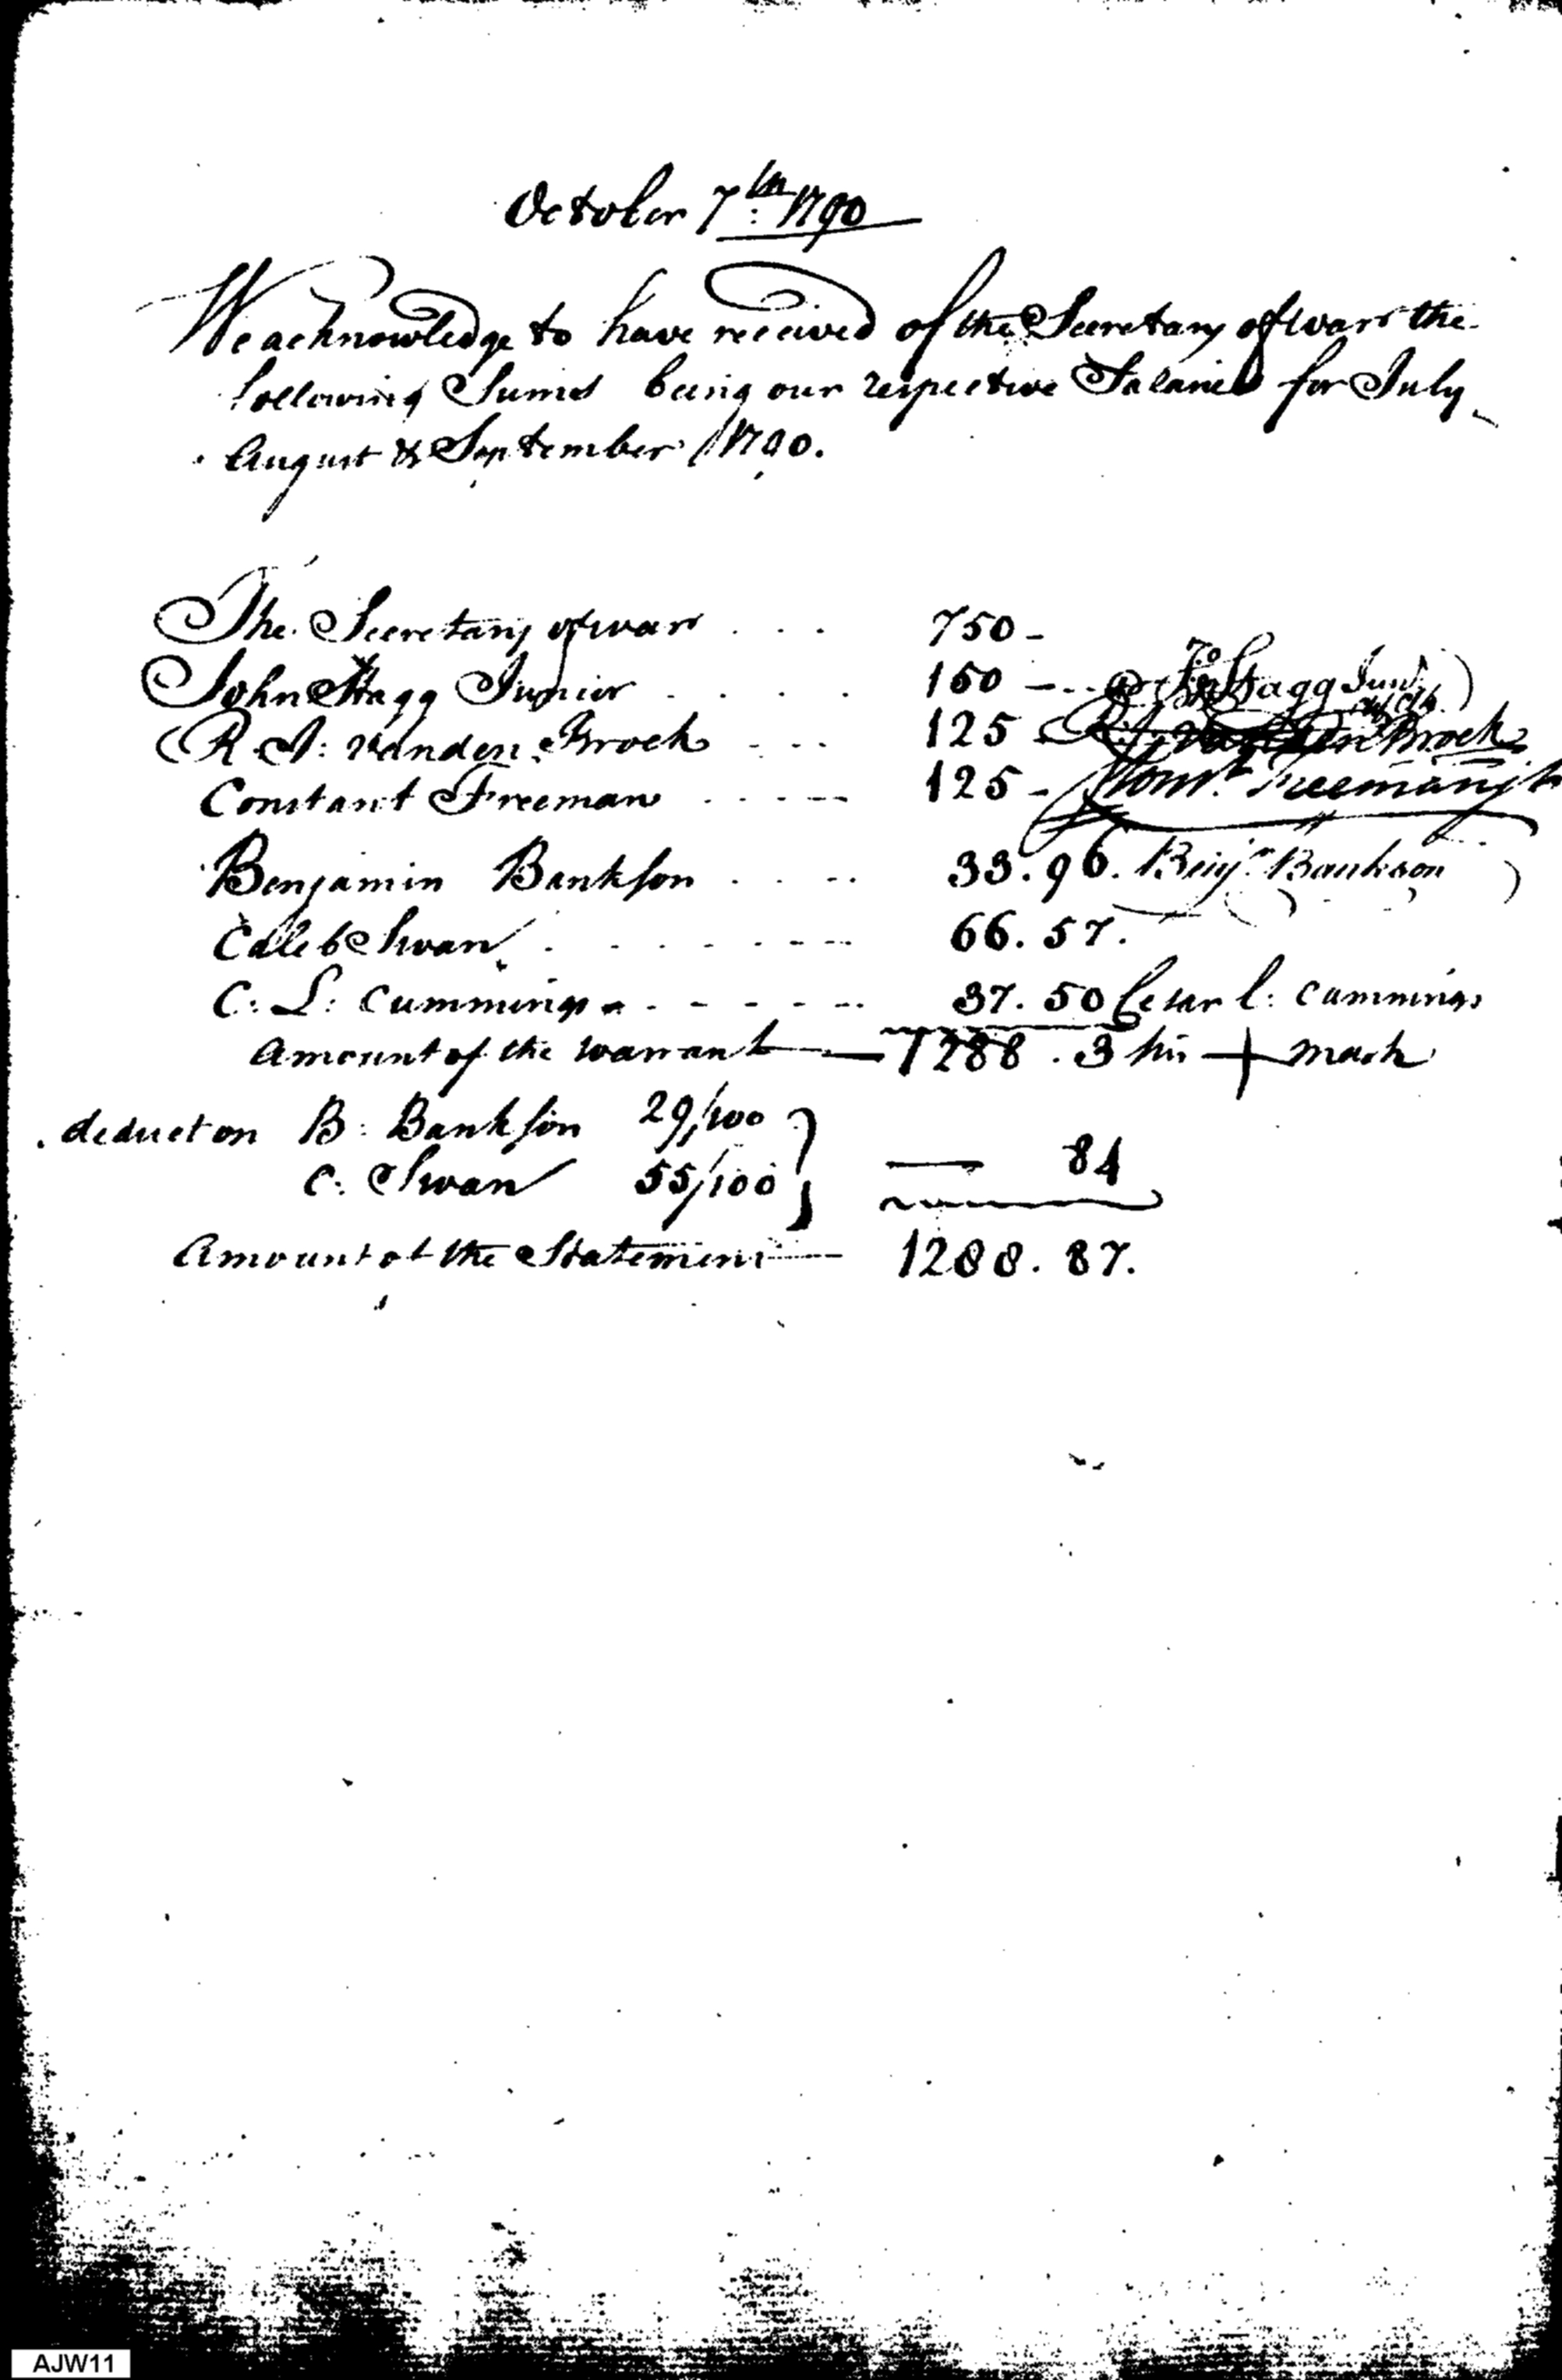 October 7th 1790
We acknowledge to have received of the Secretary of war the
following Sums being our respective Salaries for July
August & September 1790.
The Secretary of war . . . 750 -
John Stagg Junior . . . . 150 - Jno Stagg Junr
R. J: Vanden Broek - - - 125 R. J. Vanden Broek
Constant Freeman . . . - - 125 - Const. Freeman jr
Benjamin Bankson . . - - 33. 96. Benjn Bankson
Caleb Swan . . . . . - - - 66. 57.
C: L: Cummings - - - - - - 37. 50 Cesar C: Cummings
Amount of the warrant — 1288 . 3 his + mark
deduct on B: Bankson 29/100 }
C. Swan 55/100 } — 84
Amount of the Statement — 1288. 87.
AJW11